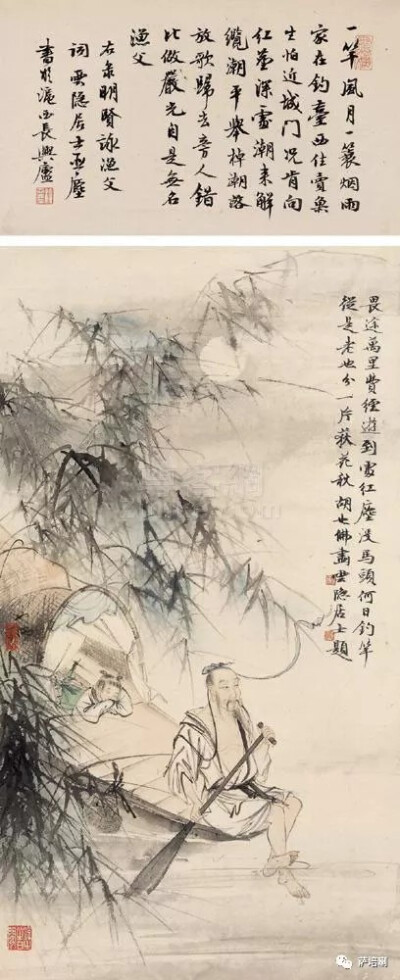 一竿風月一蓑烟雨
家在釣臺西住賣魚
生怕近城門況肯向
紅塵深處潮來解
纜潮平舉棹潮落
放歌歸去旁人錯
比做嚴光自是無名
漁父
右錄明賢詠漁父
詞雲隱居士
書於滬西長興廬
畏途萬里費經遊到處紅塵没馬頭何日釣竿
從是老也分一片荻花秋胡也佛畫雲隱居士題